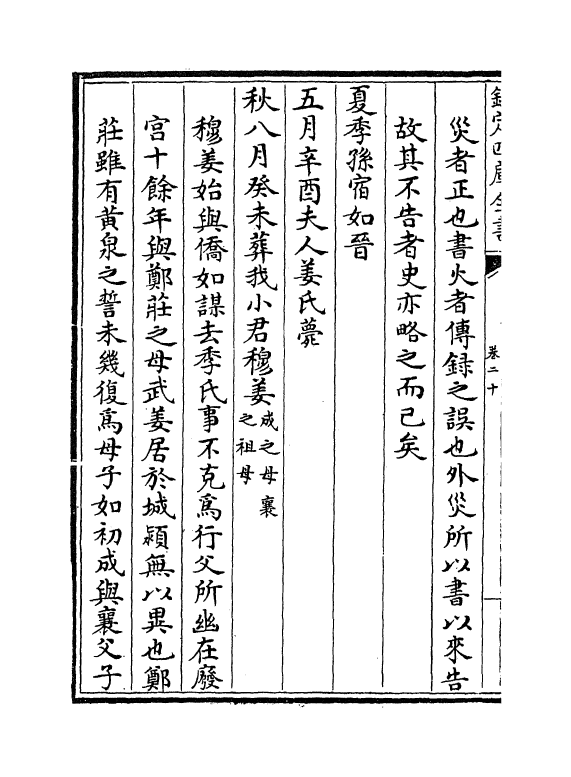 欽定四庫全書
卷二十
災者正也書火者傳録之誤也外災所以書以來告
故其不告者史亦略之而已矣
夏季孫宿如晉
五月辛酉夫人姜氏薨
秋八月癸未葬我小君穆姜成之母襄之祖母
穆姜始與僑如謀去季氏事不克爲行父所幽在廢
宫十餘年與鄭莊之母武姜居於城潁無以異也鄭
莊雖有黄泉之誓未幾復爲母子如初成與襄父子